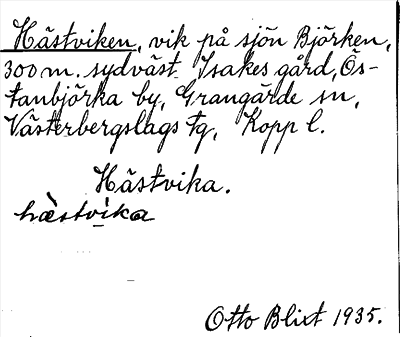 Hästviken, vik på sjön Björken,
300 m. sydväst Isakes gård, Ös-
tanbjörka by, Grangärde sn,
Västerbergslags fg, Kopp l.
Hästvika.
hæ̀stvika
Otto Blixt 1935.